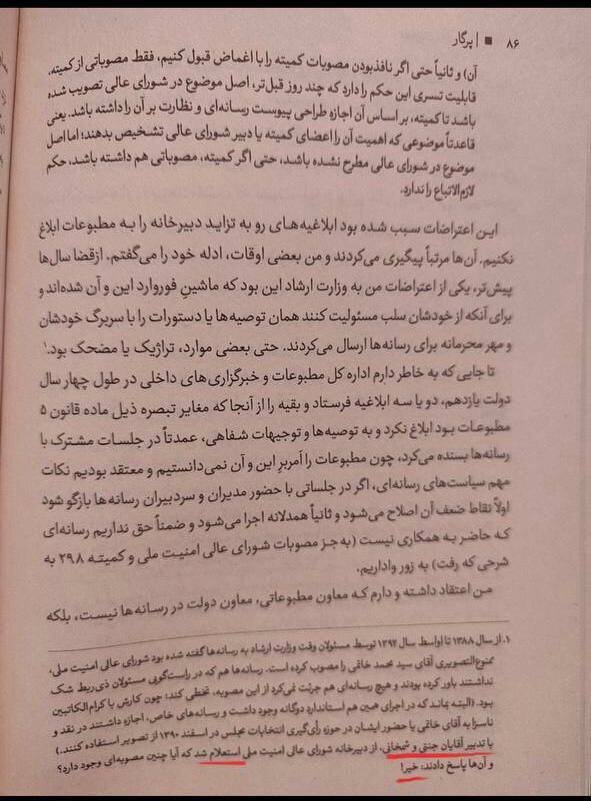 ۸۶ ■ | پرگار
آن) و ثانیاً حتی اگر نافذبودن مصوبات کمیته را با اغماض قبول کنیم، فقط مصوباتی از کمیته،
قابلیت تسری این حکم را دارد که چند روز قبل‌تر، اصل موضوع در شورای عالی تصویب شده
باشد تا کمیته، بر اساس آن اجازه طراحی پیوست رسانه‌ای و نظارت بر آن را داشته باشد. یعنی
قاعدتاً موضوعی که اهمیت آن را اعضای کمیته یا دبیر شورای عالی تشخیص بدهند؛ اما اصل
موضوع در شورای عالی مطرح نشده باشد، حتی اگر کمیته، مصوباتی هم داشته باشد، حکم
لازم‌الاتباع را ندارد.
این اعتراضات سبب شده بود ابلاغیه‌های رو به تزاید دبیرخانه را به مطبوعات ابلاغ
نکنیم. آن‌ها مرتباً پیگیری می‌کردند و من بعضی اوقات، ادله خود را می‌گفتم. ازقضا سال‌ها
پیش‌تر، یکی از اعتراضات من به وزارت ارشاد این بود که ماشینِ فوروارد این و آن شده‌اند و
برای آنکه از خودشان سلب مسئولیت کنند همان توصیه‌ها یا دستورات را با سربرگ خودشان
و مهر محرمانه برای رسانه‌ها ارسال می‌کردند. حتی بعضی موارد، تراژیک یا مضحک بود.۱
تا جایی که به خاطر دارم اداره کل مطبوعات و خبرگزاری‌های داخلی در طول چهار سال
دولت یازدهم، دو یا سه ابلاغیه فرستاد و بقیه را از آنجا که مغایر تبصره ذیل ماده قانون ۵
مطبوعات بود ابلاغ نکرد و به توصیه‌ها و توجیهات شفاهی، عمدتاً در جلسات مشترک با
رسانه‌ها بسنده می‌کرد، چون مطبوعات را آمربرِ این و آن نمی‌دانستیم و معتقد بودیم نکات
مهم سیاست‌های رسانه‌ای، اگر در جلساتی با حضور مدیران و سردبیران رسانه‌ها بازگو شود
اولاً نقاط ضعف آن اصلاح می‌شود و ثانیاً همدلانه اجرا می‌شود و ضمناً حق نداریم رسانه‌ای
که حاضر به همکاری نیست (به‌جز مصوبات شورای عالی امنیت ملی و کمیته ۲۹۸ به
شرحی که رفت) به زور واداریم.
من اعتقاد داشته و دارم که معاون مطبوعاتی، معاون دولت در رسانه‌ها نیست، بلکه
۱. از سال ۱۳۸۸ تا اواسط سال ۱۳۹۲ توسط مسئولان وقت وزارت ارشاد به رسانه‌ها گفته شده بود شورای عالی امنیت ملی،
ممنوع‌التصویری آقای سید محمد خاتمی را مصوب کرده است. رسانه‌ها هم که در راست‌گویی مسئولان ذی‌ربط شک
نداشتند باور کرده بودند و هیچ رسانه‌ای هم جرئت نمی‌کرد از این مصوبه، تخطی کند؛ چون کارش با کرام‌الکاتبین
بود. (البته بماند که در اجرای همین هم استاندارد دوگانه وجود داشت و رسانه‌های خاص، اجازه داشتند در نقد و
ناسزا به آقای خاتمی یا حضور ایشان در حوزه رأی‌گیری انتخابات مجلس در اسفند ۱۳۹۰ از تصویر استفاده کنند.)
با تدبیر آقایان جنتی و شمخانی، از دبیرخانه شورای عالی امنیت ملی استعلام شد که آیا چنین مصوبه‌ای وجود دارد؟
و آن‌ها پاسخ دادند: خیر!